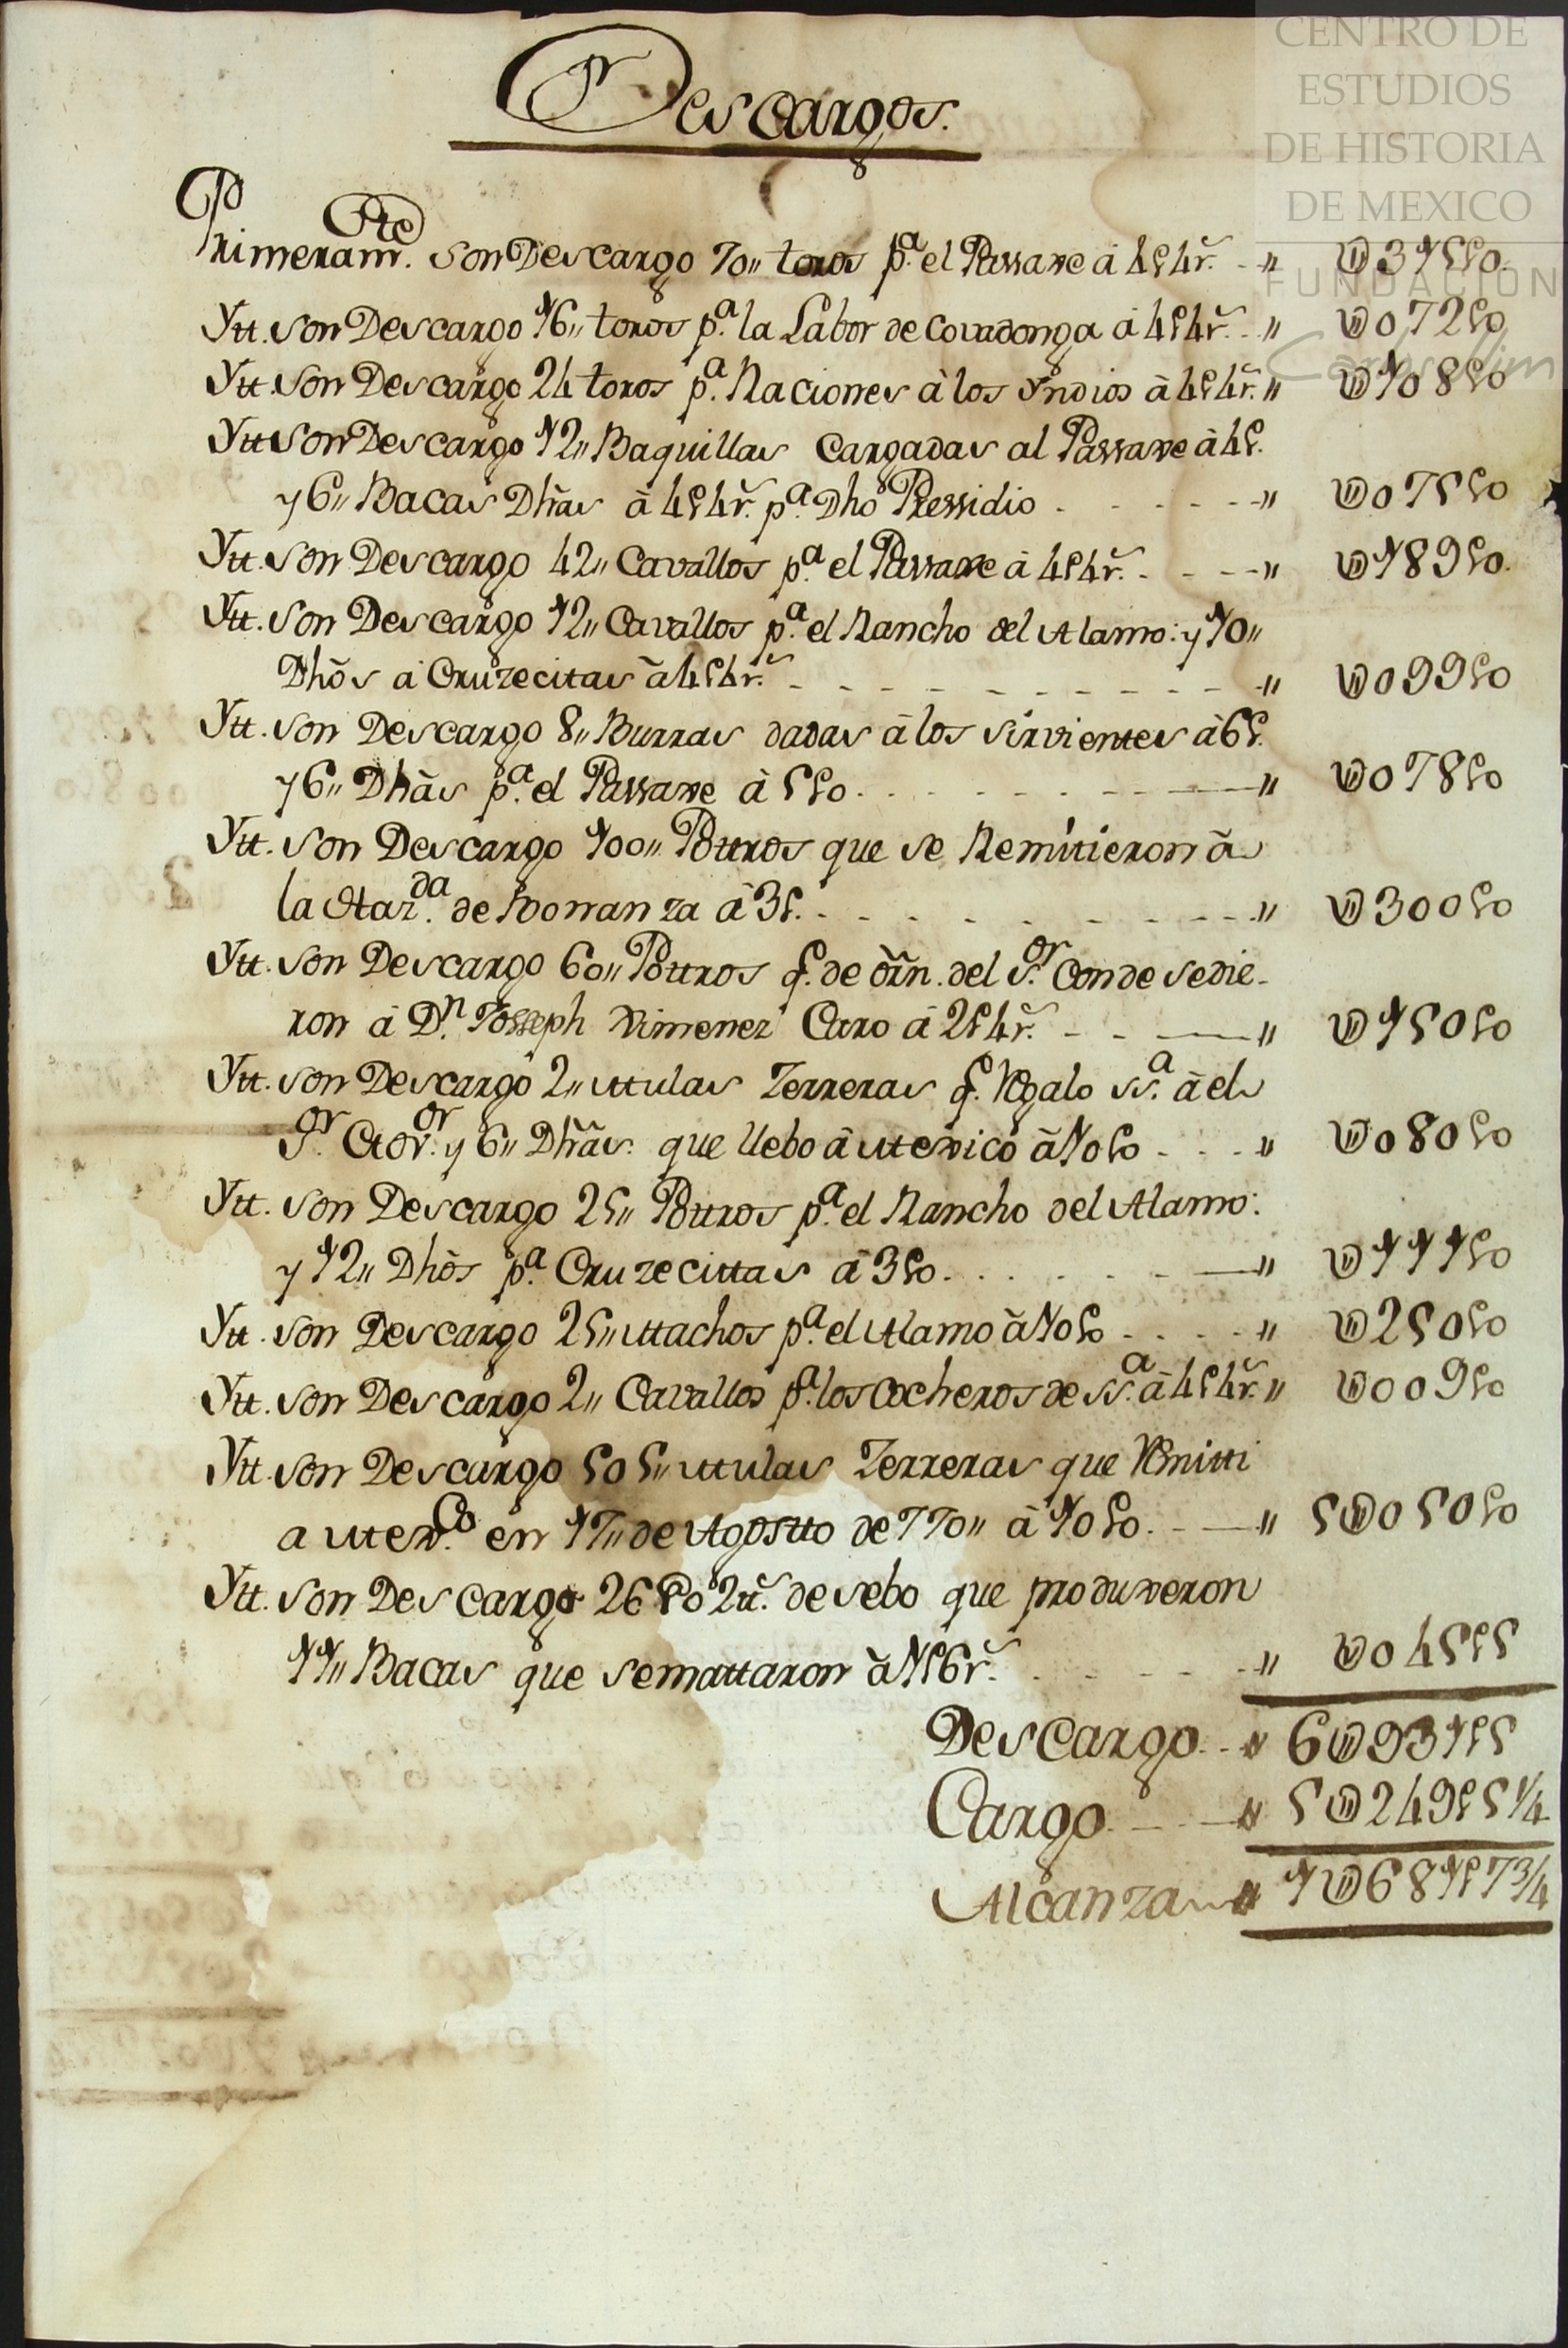 CENTRO DE
ESTUDIOS
DE HISTORIA
DE MEXICO
FUNDACIÓN
Carlos Slim
Descargos.
Primeram.te son Descargo 70,, toros p.a el Passaxe â 4p4r.s - ,, U315p0.
Ytt. son Descargo 16,, toros p.a la Labor de Covadonga â 4p4r.s ,, U072p0
Ytt. son Descargo 24 toros p.a Raciones â los Yndios â 4p4r.s ,, U108p0
Ytt son Descargo 12,, Baquillas Cargadas al Passaxe â 4p.
y 6,, Bacas Dhãs â 4p4r.s p.a Dho Pressidio - - - - - ,, U075p0
Ytt. son Descargo 42,, Cavallos p.a el Passaxe â 4p4r.s - - - ,, U189p0.
Ytt. son Descargo 12,, Cavallos p.a el Rancho del Alamo: y 10,,
Dhõs a Cruzecitas â 4p4r.s - - - - - - - - ,, U099p0
Ytt. son Descargo 8,, Burras dadas â los sirvientes â 6p.
y 6,, Dhãs p.a el Passaxe â 5p0. - - - - - - ,, U078p0
Ytt. son Descargo 100,, Pottros que se Remitieron â
la Haz.da de Bonanza â 3p. - - - - - - - - ,, U300p0
Ytt. son Descargo 60,, Pottros q. de õrn. del S.or Conde se die-
ron â D.n Josseph Ximenez Caro â 2p4r.s - - - ,, U150p0
Ytt. son Descargo 2,, Mulas Zerreras q. Regalo SS.a â el
S.or Ct̃ov.or y 6,, Dhãs. que llebo â Mexico â 10p0 - - - ,, U080p0
Ytt. son Descargo 25,, Pottros p.a el Rancho del Alamo:
y 12,, Dhõs p.a Cruzecittas â 3p0. - - - - - ,, U111p0
Ytt. son Descargo 25,, Machos p.a el Alamo â 10p0 - - - - ,, U250p0
Ytt. son Descargo 2,, Cavallos p.a los Cocheros de SS.a â 4p4r.s ,, U009p0
Ytt. son Descargo 505,, Mulas Zerreras que Remitti
a Mex.co en 17,, de Agostto de 770,, â 10p0. - - ,, 5U050p0
Ytt. son Descargo 26 @ 2tt.s de sebo que produxeron
11,, Bacas que se mattaron â 1p6r.s - - - - ,, U045p5
Descargo - - ,, 6U931p5
Cargo - - - ,, 5U249p5 1/4
Alcanza ,, 1U681p7 3/4